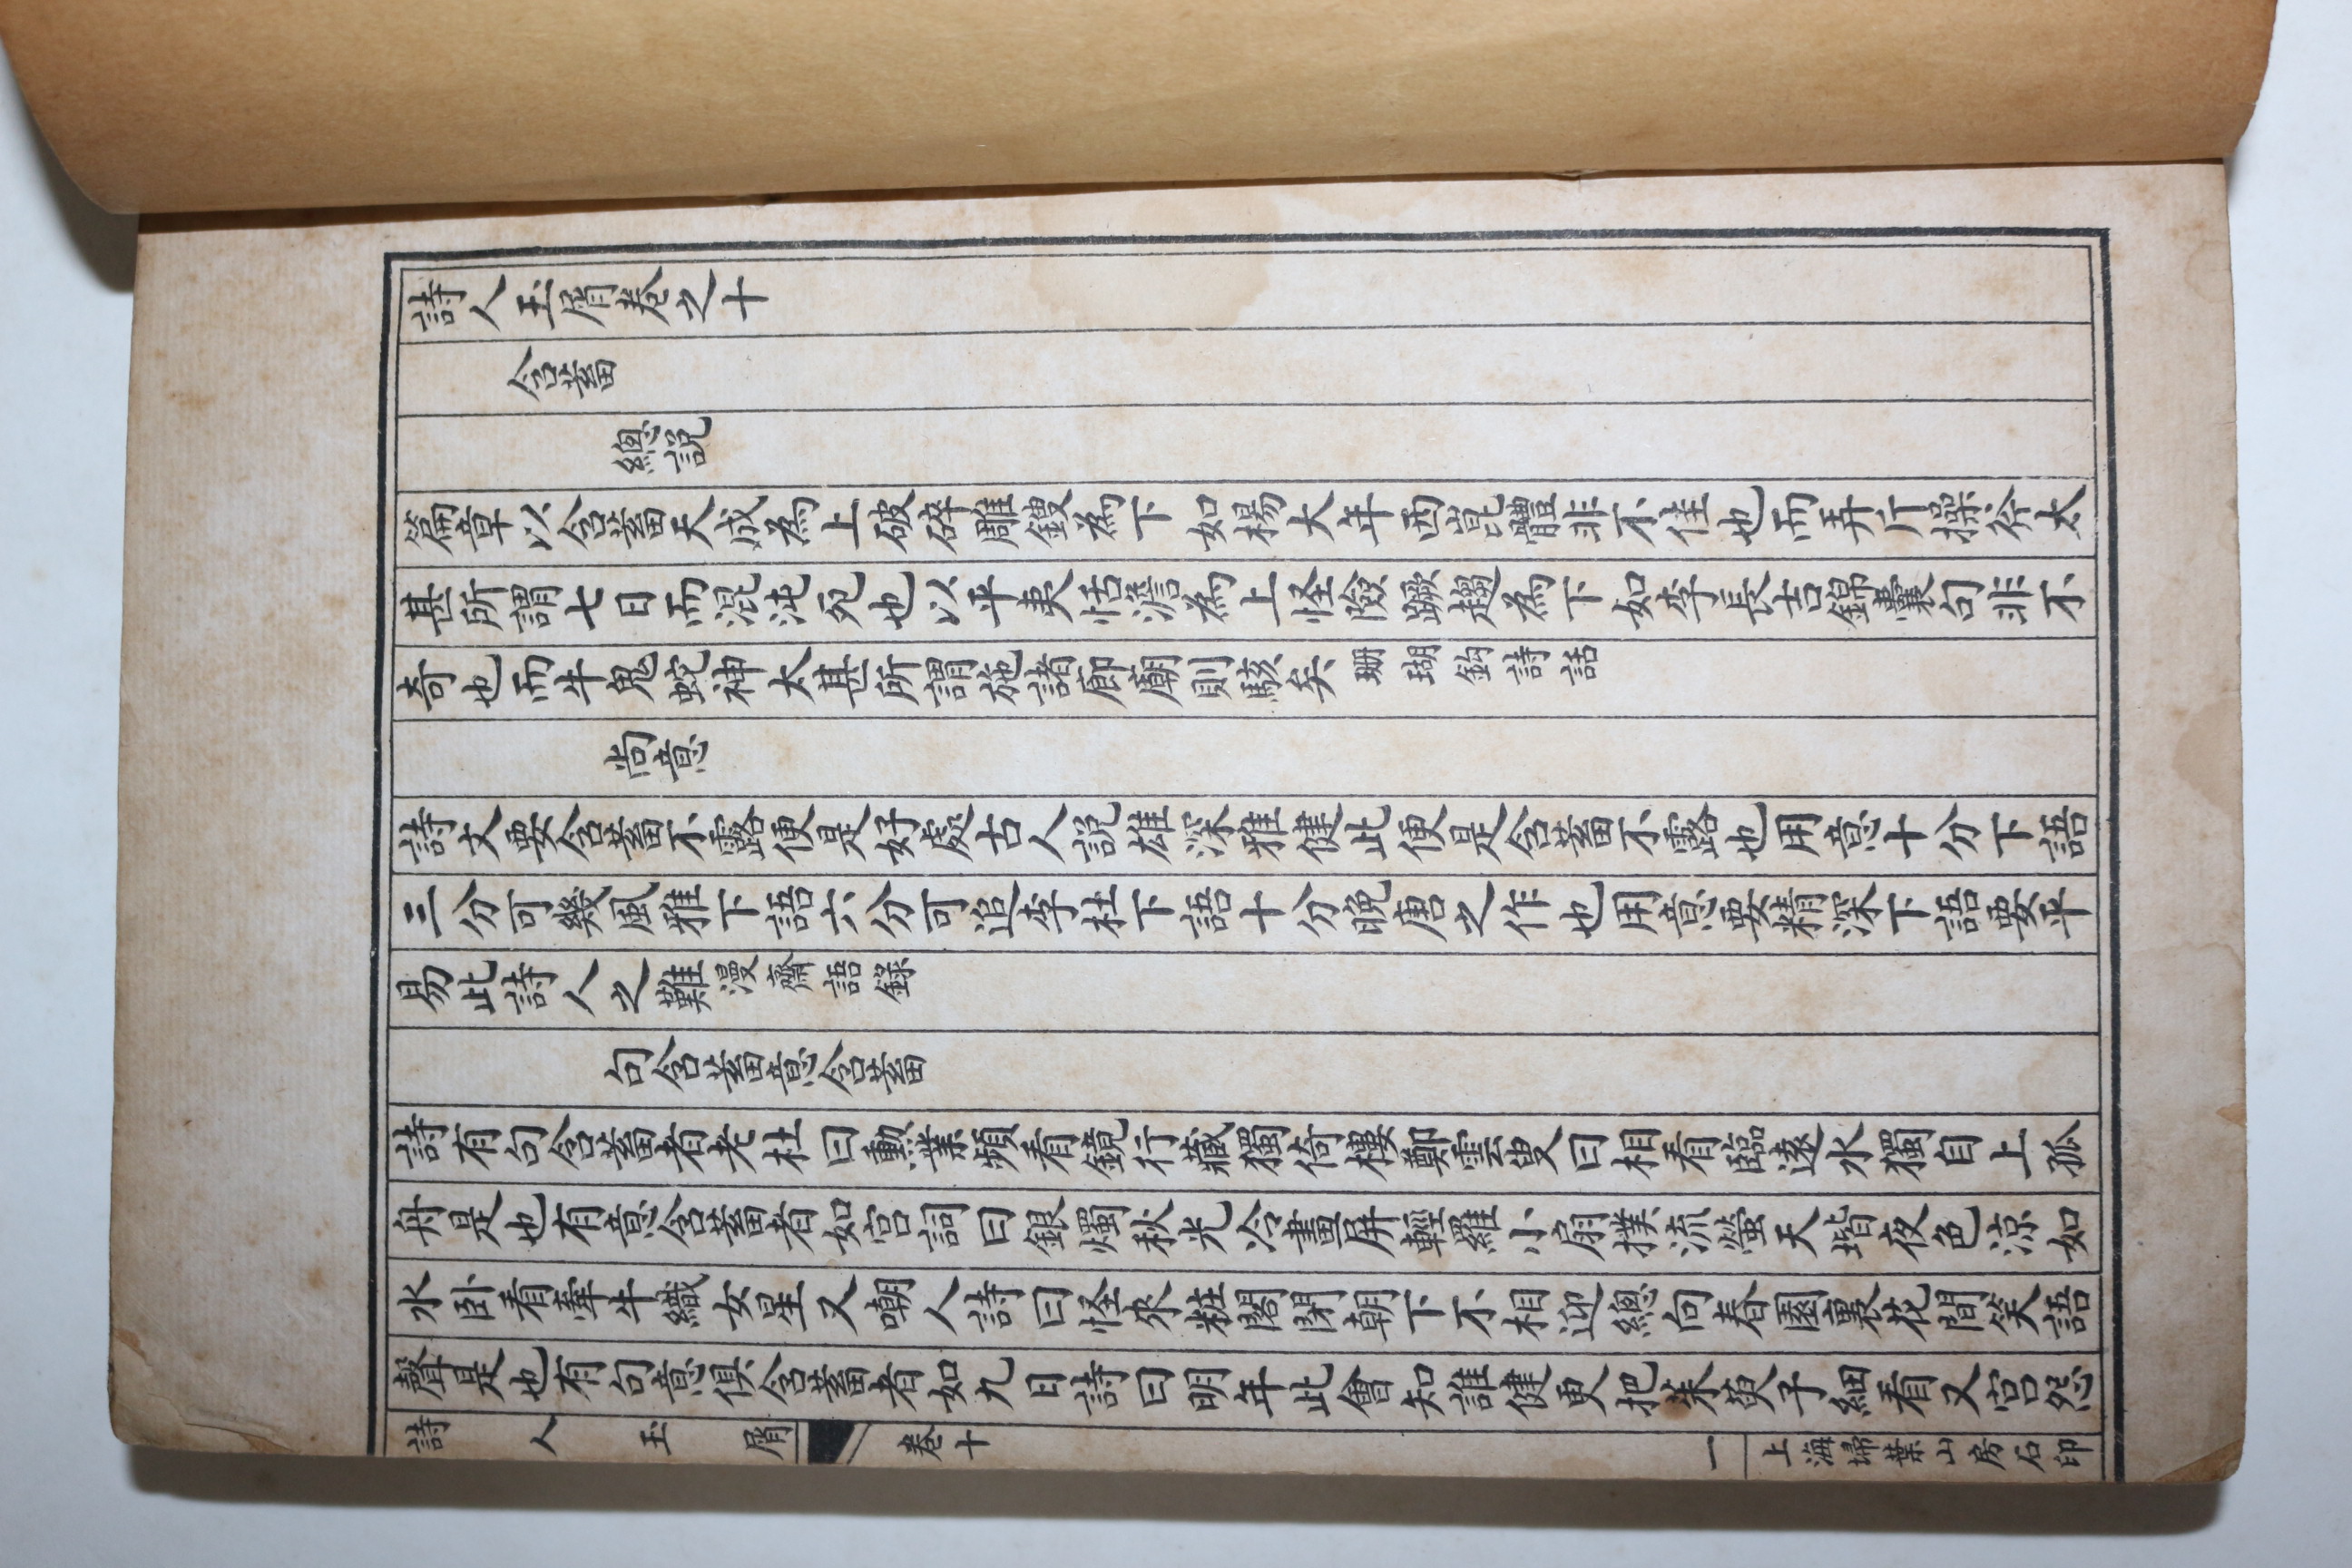 詩人玉屑卷之十
含蓄
總說
篇章以含蓄天成為上破碎雕鎪為下如楊大年西崑體非不佳也而弄斤操斧太
甚所謂七日而混沌死也以平夷恬澹為上怪險蹶趨為下如李長吉錦囊句非不
奇也而牛鬼蛇神太甚所謂施諸廊廟則駭矣珊瑚鈎詩話
尚意
詩文要含蓄不露便是好處古人說雄深雅健此便是含蓄不露也用意十分下語
三分可幾風雅下語六分可追李杜下語十分晚唐之作也用意要精深下語要平
易此詩人之難漫齋語錄
句含蓄意含蓄
詩有句含蓄者老杜曰勳業頻看鏡行藏獨倚樓鄭雲叟曰相看臨遠水獨自上孤
舟是也有意含蓄者如宮詞曰銀燭秋光冷畫屏輕羅小扇撲流螢天堦夜色涼如
水卧看牽牛織女星又嘲人詩曰怪來粧閣閉朝下不相迎總向春園裏花間笑語
聲是也有句意俱含蓄者如九日詩曰明年此會知誰健更把茱萸子細看又宮怨
詩人玉屑 卷十 一 上海埽葉山房石印